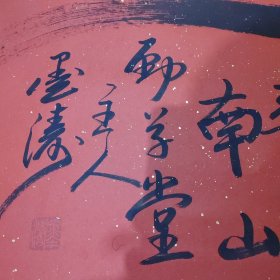 南山
勤学堂
主人
墨涛